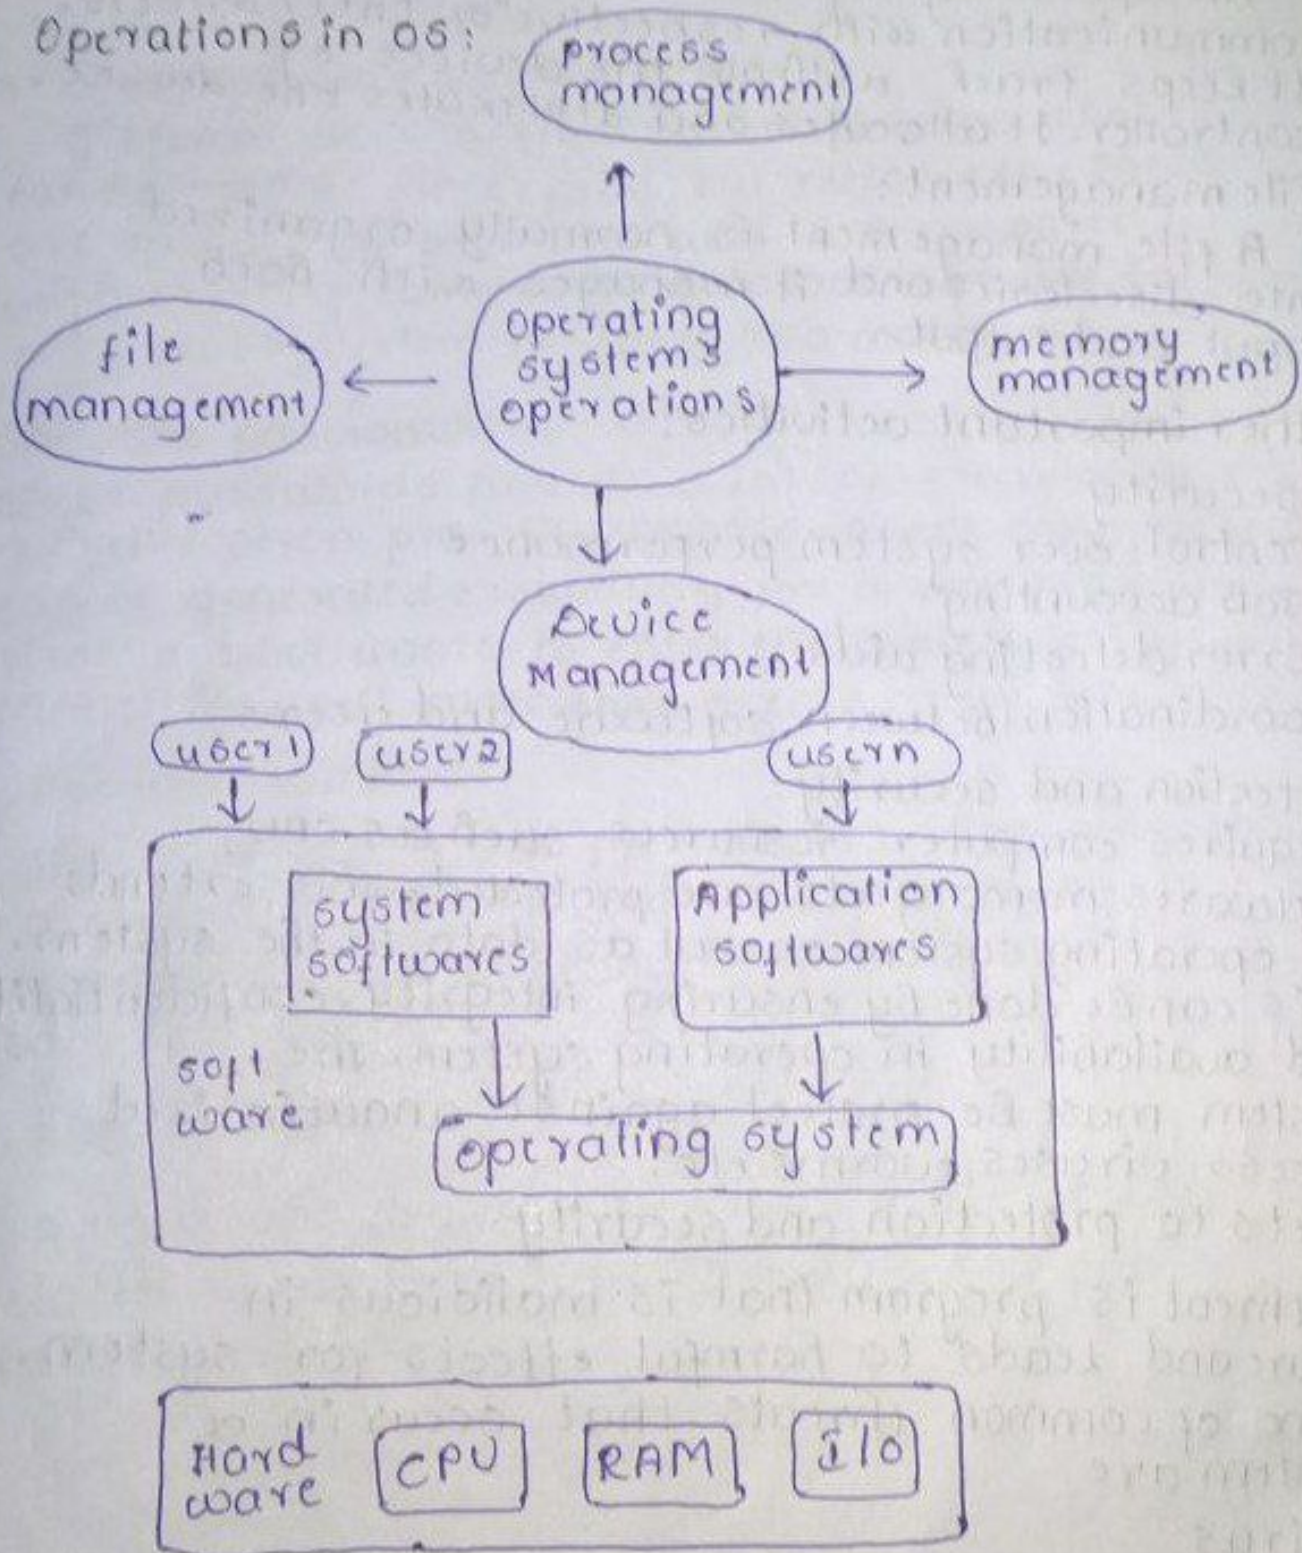 Operations in OS:
process
management
file
management
operating
system's
operations
memory
management
Device
Management
user1
user2
usern
system
softwares
Application
softwares
soft
ware
operating system
Hard
ware
CPU
RAM
I/O